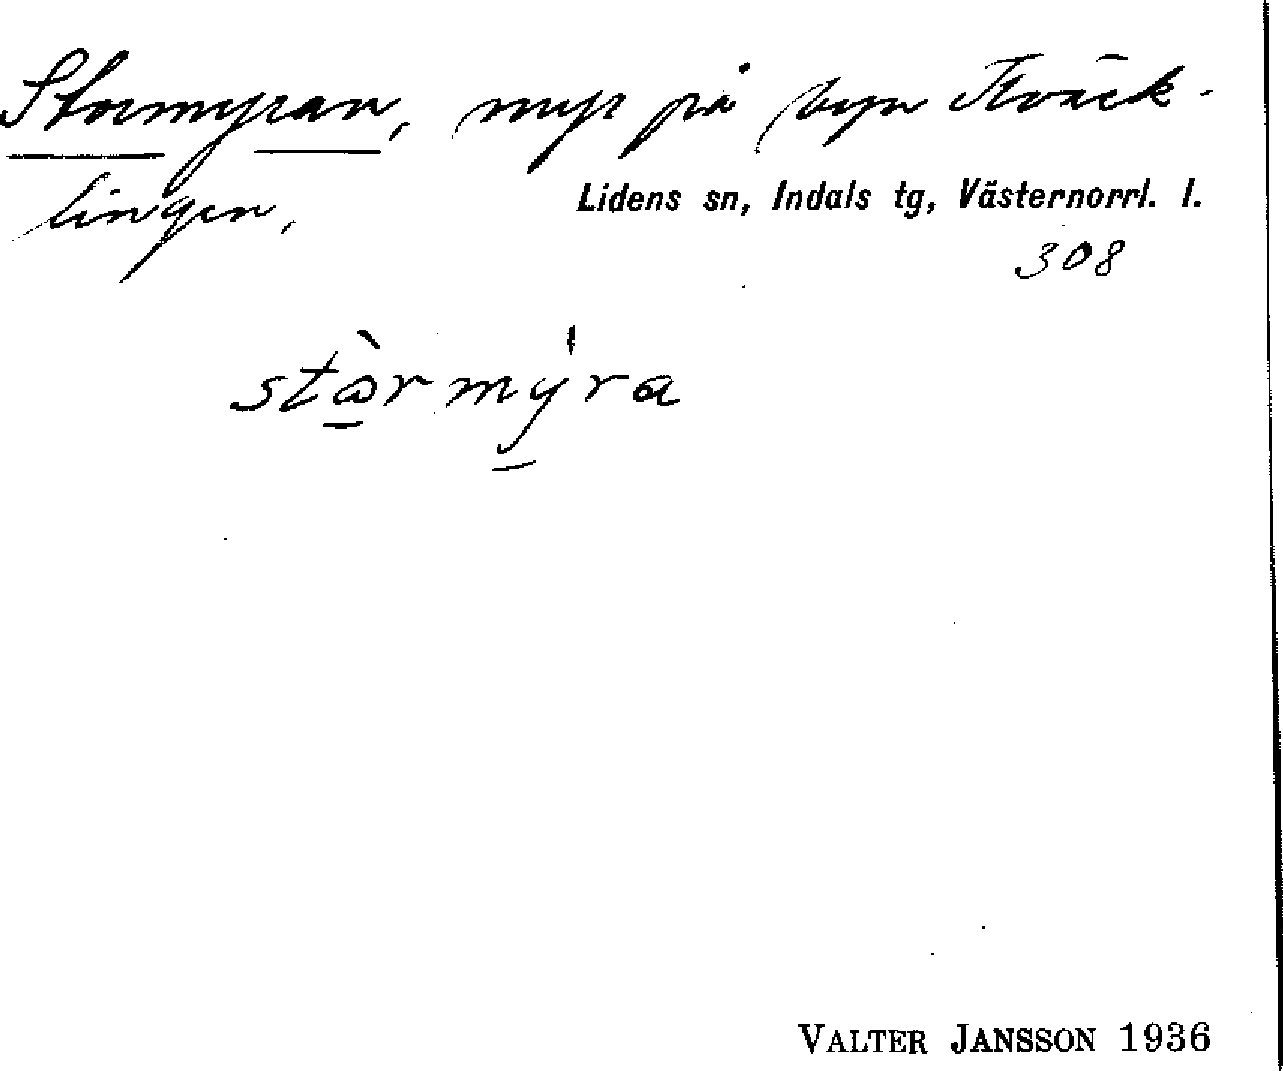 Stormyran, myr på byn Kväck-
lingen,
Lidens sn, Indals tg, Västernorrl. l.
308
stɷ̀rmy̍ra
VALTER JANSSON 1936